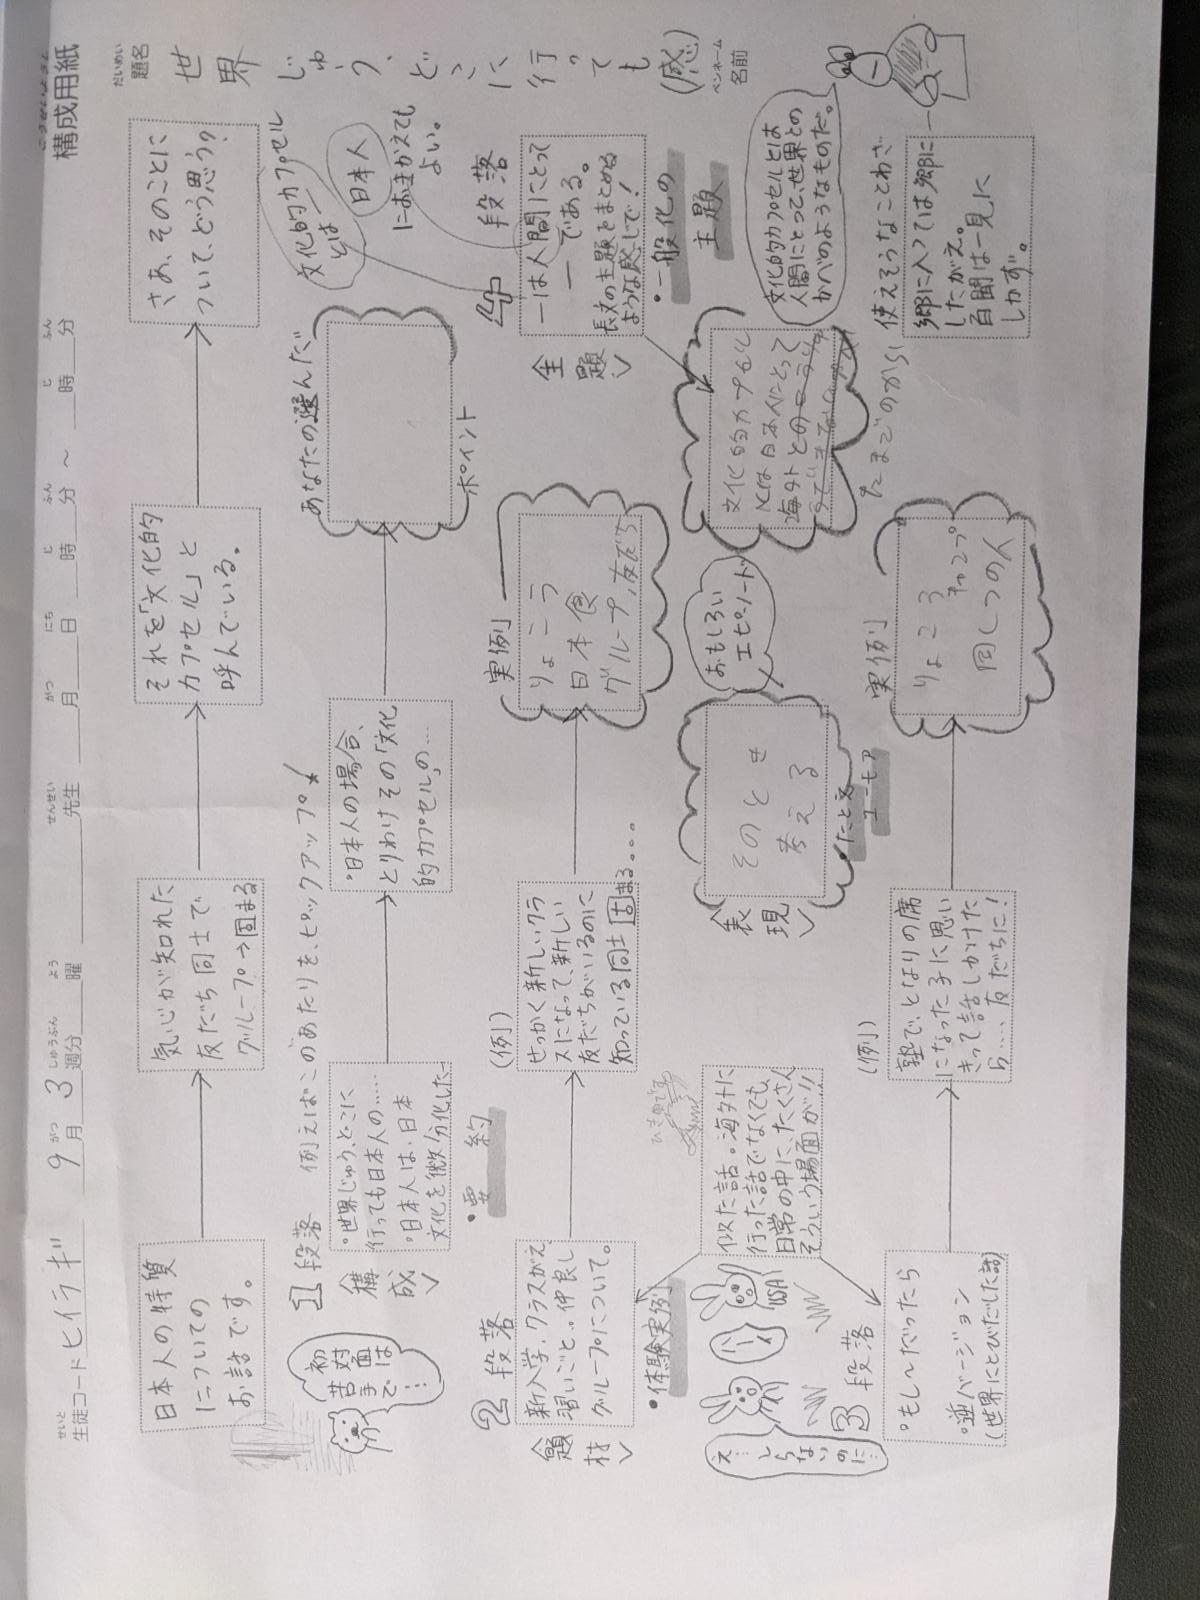 構成用紙
こうせいようし
生徒コード ヒイラギ 9月 3週分 曜 先生 月 日 時 分 ～ 時 分
せいと がつ しゅうぶん よう せんせい がつ にち じ ふん じ ふん
題名 世界じゅう、どこに行っても (感)
だいめい
ペンネーム
名前
日本人の特質
についての
お話です。
気心が知れた
友だち同士で
グループ→固まる
それを「文化的
カプセル」と
呼んでいる。
さあ、そのことに
ついて、どう思う？
1段落 例えばこのあたりを、ピックアップ!
＜構成＞
初対面では
苦手…
・世界じゅう、どこに
行っても日本人の……
・日本人は、日本
文化を微分化した…
・要約
・日本人の場合、
とりわけその「文化
的カプセル」の…
あなたの選んだ
ポイント
文化的カプセル
とは
日本人
におきかえても
よい。
2段落
＜題材＞
新入学、クラスがえ
習いごと…仲良し
グループについて。
・体験実例
(例)
せっかく新しいクラ
スになって、新しい
友だちがいるのに
知っている同士固まる...
実例
りょこう
日本食
グループ、友だち
4段落
＜主題＞
ーは人間にとって
ーである。
長文の主題をまとめる
ような感じで！
・一般化の
主題
似た話。海外に
行った話でなくても、
日常の中に、たくさん
そういう場面が!!
＜表現＞
そのとき
考える
たとえ
ユーモア
おもしろい
エピソード
文化的カプセル
とは日本人にとって
海外との
たまごのから
文化的カプセルとは
人間にとって、世界との
かべのようなものだ。
え…
しらないのに…
USA
3段落
・もし〜だったら
・逆バージョン
(世界にとびだした話)
(例)
塾で、となりの席
になった子に思い
きって話しかけた
ら…、友だちに!
実例
りょこう
キャンプ
同じつの人
使えそうなことわざ
郷に入っては郷に
したがえ。
百聞は一見に
しかず。